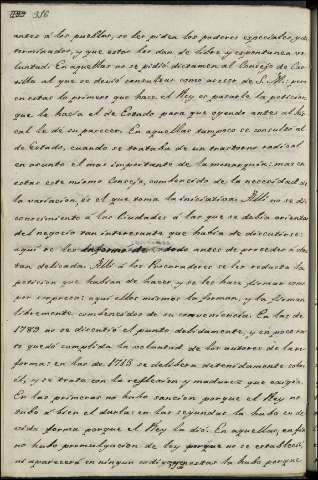 316
antes á los pueblos, se les piden los poderes especiales, y de-
terminados, y que estos los dan de libre y espontanea vo-
luntad. En aquellas no se pidió dictamen al Consejo de Cas-
tilla al que se devió consultar como asesor de S. M.: pero
en estas lo primero que hace el Rey es pasarle la peticion
que le hacía el de Estado para que oyendo antes al Fis-
cal le dé su parecer. En aquellas tampoco se consultó al
de Estado, cuando se trataba de un trastorno radical
en asunto el mas importante de la monarquía: mas en
estas este mismo Consejo, combencido de la necesidad de
la variacion, es el que toma la iniciativa. Alli no se dió
conocimiento á las Ciudades á las que se debia orientar
del negocio tan interesante que habia de discutirse:
aqui se les informa de todo antes de proceder á obra
tan delicada. Alli á los Procuradores se les redacta la
peticion que habian de hacer, y se les hace firmar como
por impreso: aqui ellos mismos la forman, y la firman
libremente combencidos de su conveniencia. En las de
1789 no se discutió el punto debidamente, y en poco ra-
to quedó cumplida la voluntad de los autores de la re-
forma: en las de 1713 se delibera detenidamente sobre
él, y se trata con la reflexion y madurez que exigia.
En las primeras no hubo sancion porque el Rey no
tubo á bien el darla: en las segundas la hubo en de-
vida forma porque el Rey la dió. En aquellas, en fin
no hubo promulgacion de ley porque no se estableció,
ni aparecerá en ningun codigo; en estas la hubo porque